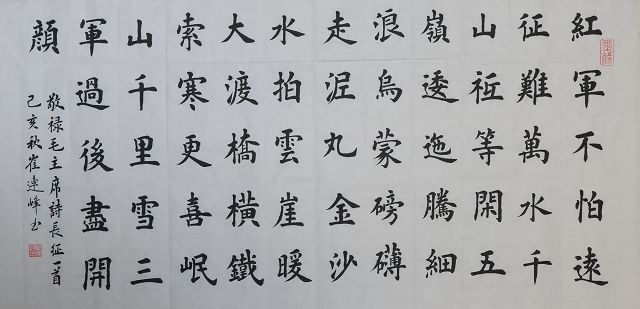 紅軍不怕遠
征難萬水千
山祗等閑五
嶺逶迤騰細
浪烏蒙磅礴
走泥丸金沙
水拍雲崖暖
大渡橋橫鐵
索寒更喜岷
山千里雪三
軍過後盡開
顏
敬禄毛主席詩長征一首
己亥秋崔連峰书